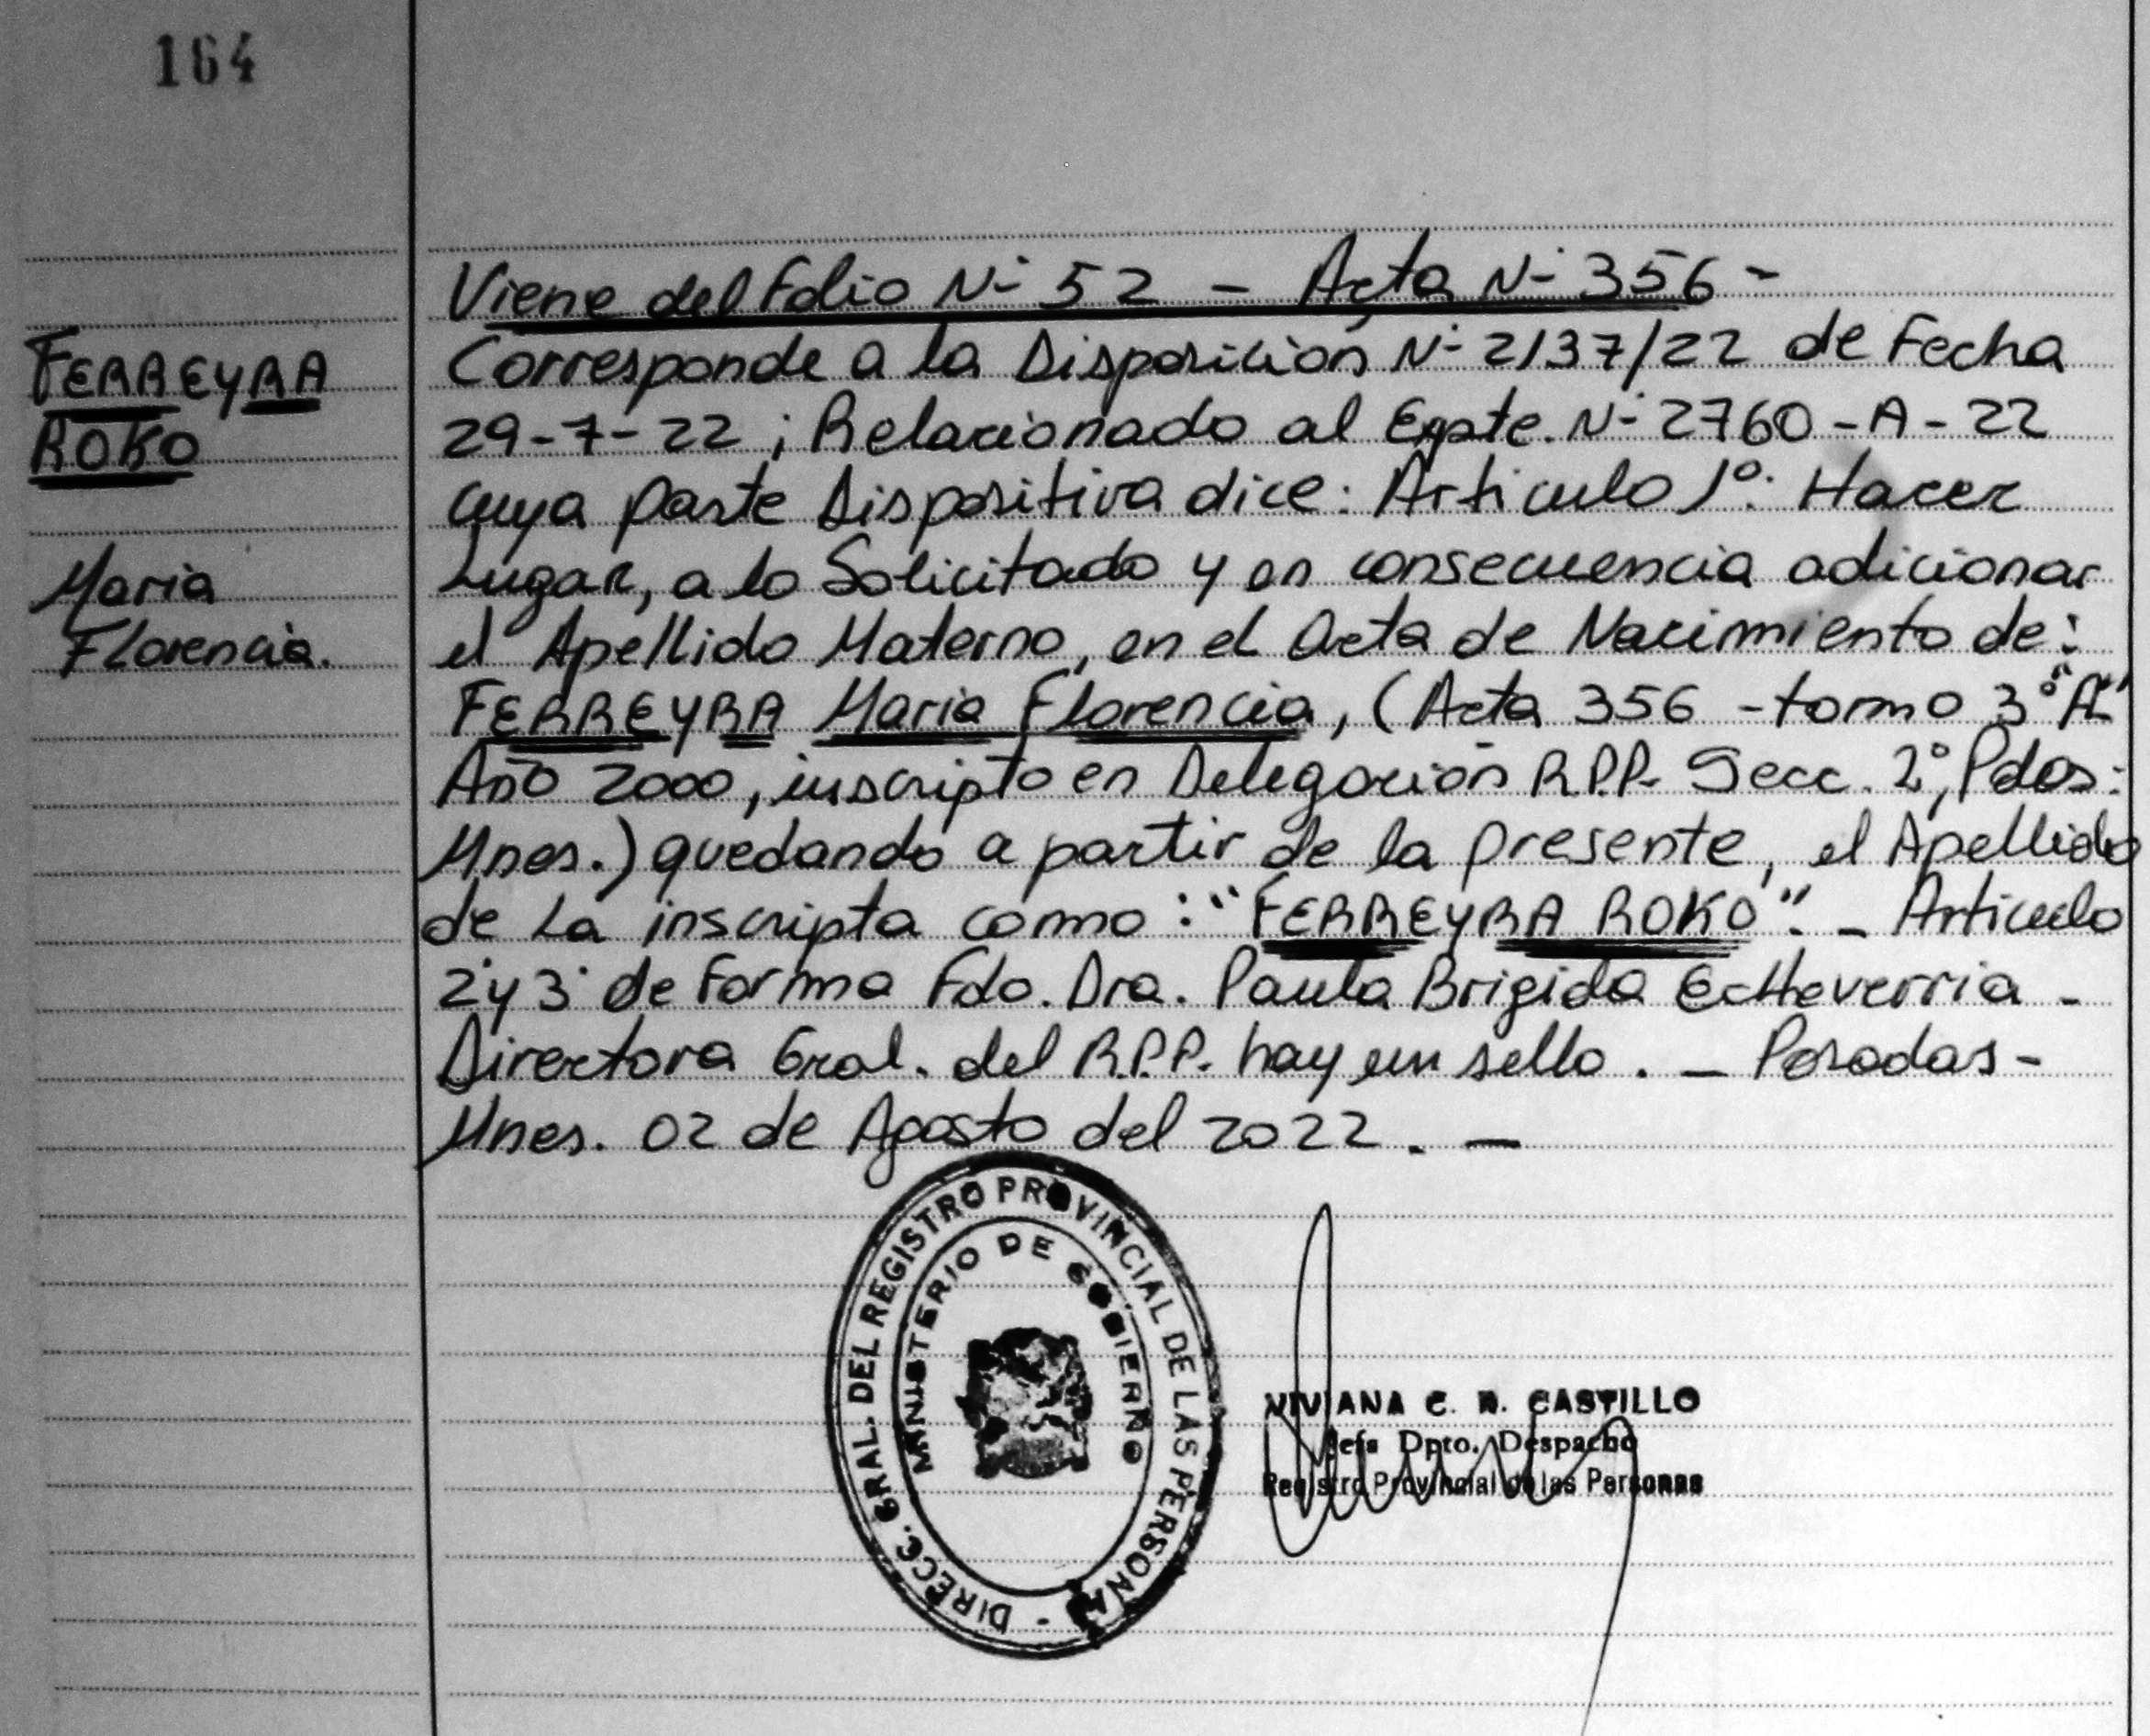 164
FERREYRA
ROKO
Maria
Florencia.
Viene del Folio N- 52 - Acta N- 356 -
Corresponde a la Disposición N- 2137/22 de Fecha
29-7-22; Relacionado al Expte. N- 2760-A-22
cuya parte Dispositiva dice: Articulo 1º: Hacer
Lugar, a lo Solicitado y en consecuencia adicionar
el Apellido Materno, en el Acta de Nacimiento de:
FERREYRA Maria Florencia, (Acta 356 - tomo 3º "A"
Año 2000, inscripto en Delegación R.P.P. Secc. 2º, Pdas:
Mnes.) quedando a partir de la presente, el Apellido
de La inscripta como: "FERREYRA ROKO". - Articulo
2º y 3º de Forma Fdo. Dra. Paula Brigida Echeverria -
Directora Gral. del R.P.P. hay un sello. - Posadas -
Mnes. 02 de Agosto del 2022. -
DIRECC. GRAL. DEL REGISTRO PROVINCIAL DE LAS PERSONAS -
MINISTERIO DE GOBIERNO
VIVIANA C. N. CASTILLO
Jefa Dpto. Despacho
Registro Provincial de las Personas